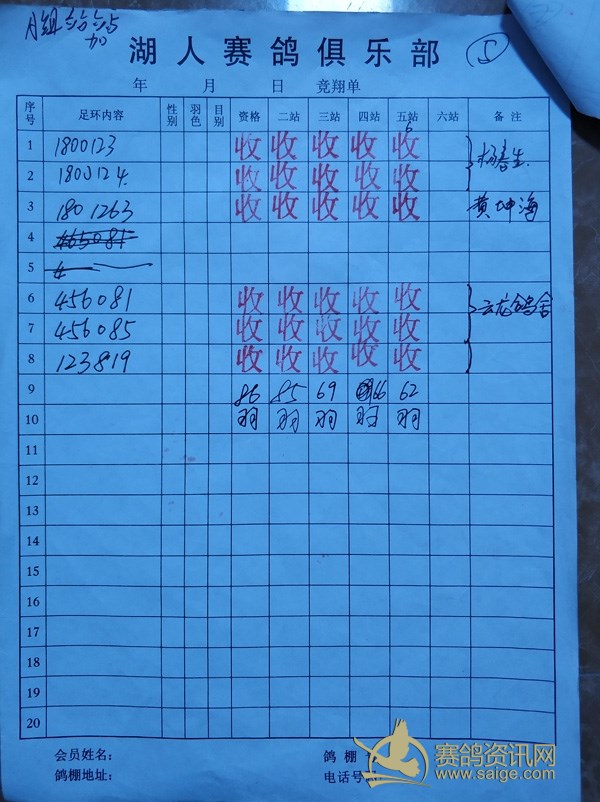 A组
加
湖人赛鸽俱乐部 5
年 月 日 竞翔单
序号 足环内容 性别 羽色 目别 资格 二站 三站 四站 五站 六站 备注
6
1 1800123 收 收 收 收 收 杨春生
2 1800124 收 收 收 收 收
3 1801263 收 收 收 收 收 黄坤海
4 465081
5
6 456081 收 收 收 收 收 云龙鸽舍
7 456085 收 收 收 收 收
8 123819 收 收 收 收 收
9 86 85 69 66 62
10 羽 羽 羽 羽 羽
11
12
13
14
15
16
17
18
19
20
会员姓名: 鸽棚
鸽棚地址: 电话号
赛鸽资讯网
www.saige.com